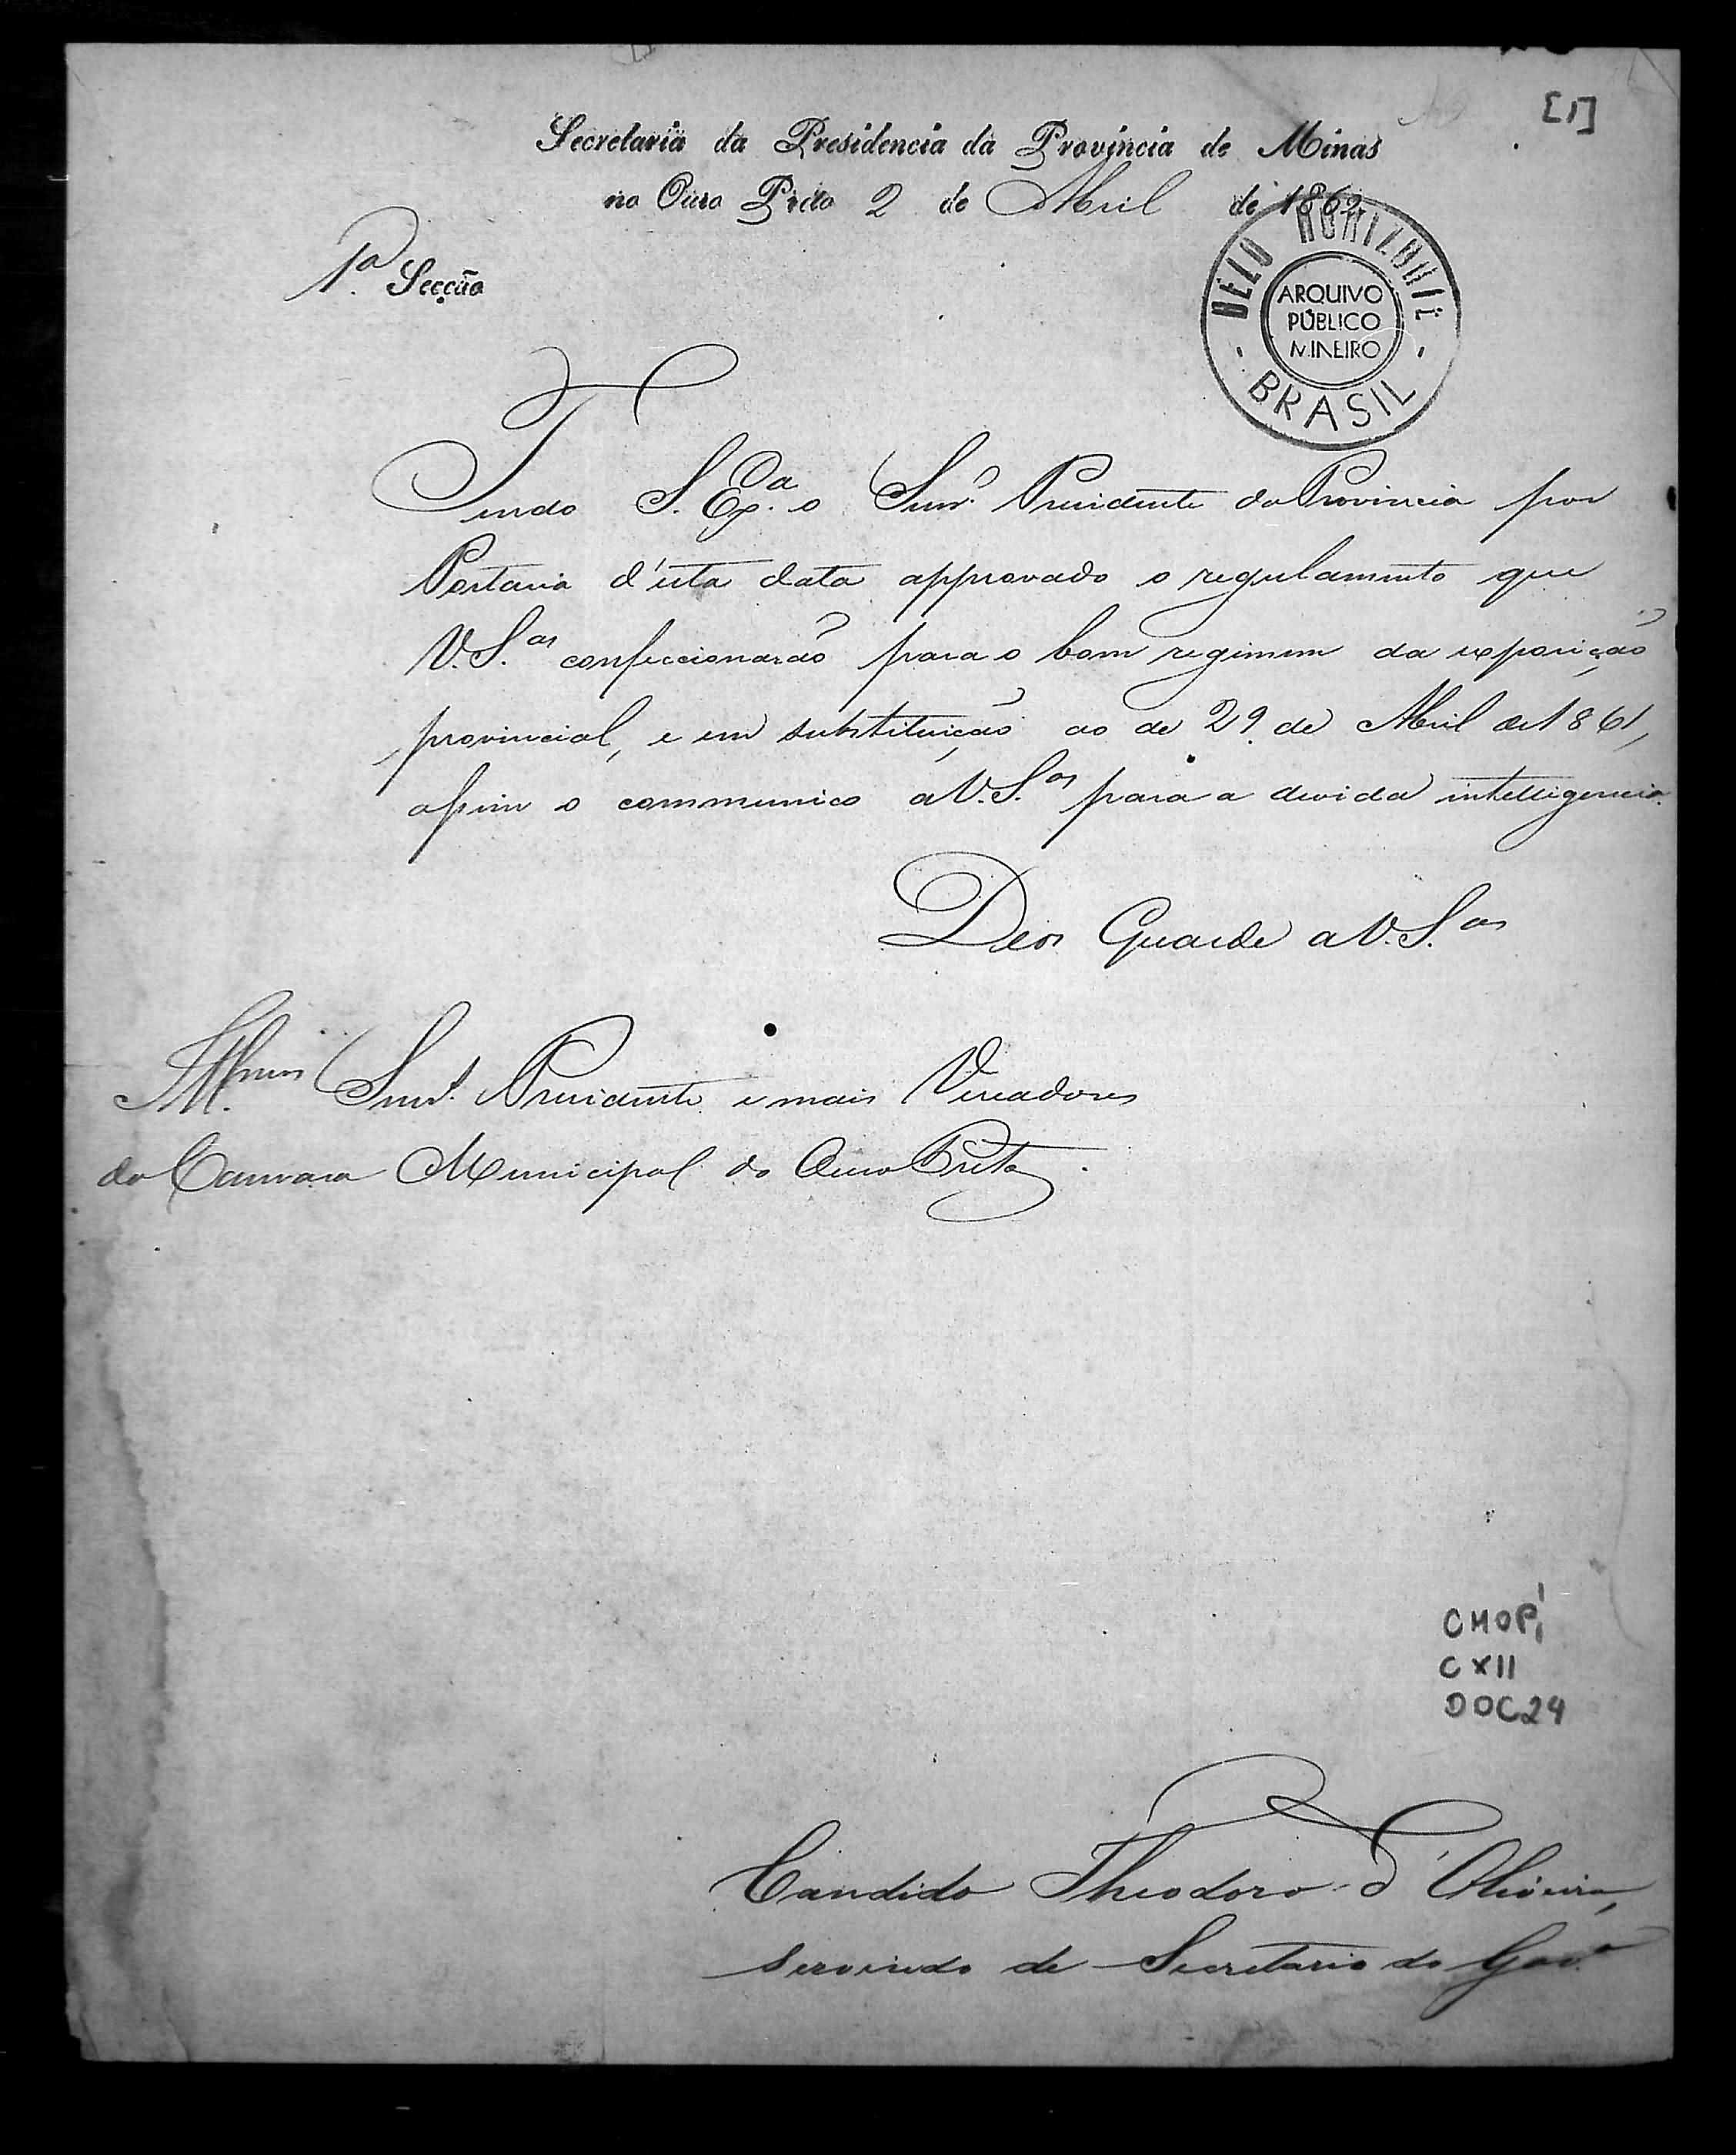 [1]
Secretaria da Presidencia da Provincia de Minas
no Ouro Preto 2 de Abril de 1862
1ª Secção
BELO HORIZONTE
ARQUIVO
PÚBLICO
MINEIRO
- BRASIL -
Tendo S. Exª. o Snr. Presidente da Provincia por
Portaria d'esta data approvado o regulamento que
V. S.as confeccionarão para o bom regimem da exposição
provincial, e em substituição ao de 29 de Abril de 1861,
assim o communico a V. S.as para a devida intelligencia.
Deos Guarde a V. S.as
Illmos Snrs. Presidente e mais Vereadores
da Camara Municipal do Ouro Preto.
CMOP
CXII
DOC24
Candido Theodoro d'Oliveira,
servindo de Secretario do Govº